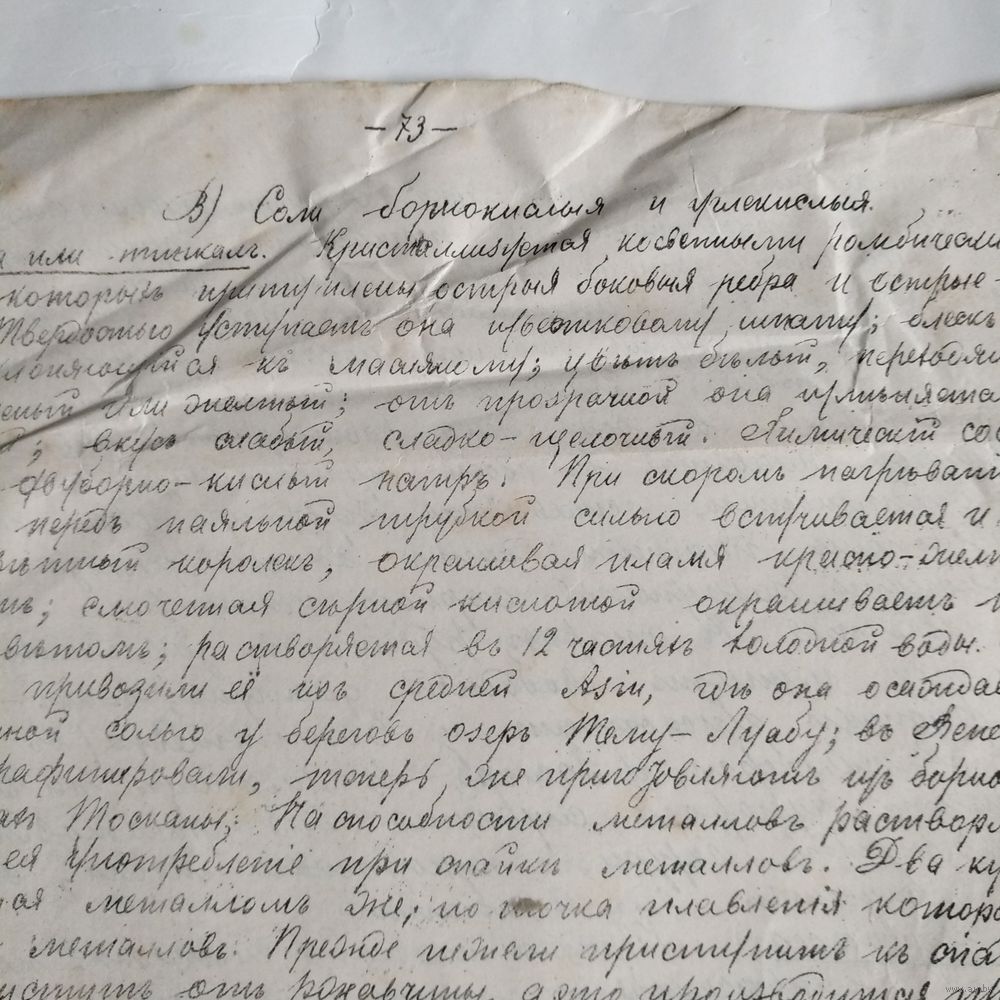 — 73 —
В) Соли борнокислыя и углекислыя.
а или тинкалъ. Кристаллизуется косвенными ромбически
которыхъ притуплены острыя боковыя ребра и острые
Твердостью уступаетъ она известковому шпату; блескъ
клоняющійся къ масляному; цвѣтъ бѣлый, переходящ
еный или желтый; отъ прозрачной она измѣняется
й; вкусъ слабый, сладко-щелочный. Химическій сос
двуборно-кислый натръ. При скоромъ нагрѣваніи
передъ паяльной трубкой сильно вспучивается и
вѣтный королекъ, окрашивая пламя красно-желт
тъ; смоченная сѣрной кислотой окрашиваетъ п
вѣтомъ; растворяется въ 12 частяхъ холодной воды.
привозили её изъ средней Азіи, гдѣ она осаждае
ной солью у береговъ озеръ Тему-Луабу; въ Вене
рафинировали, теперь же приготовляютъ изъ борно
ахъ Тосканы; На способности металловъ растворя
ея употребленіе при спайкѣ металловъ. Два ку
ная металломъ же, но точка плавленія котора
металловъ. Прежде нежели приступить къ спай
истить отъ ржавчины, а это производится
www.au.by